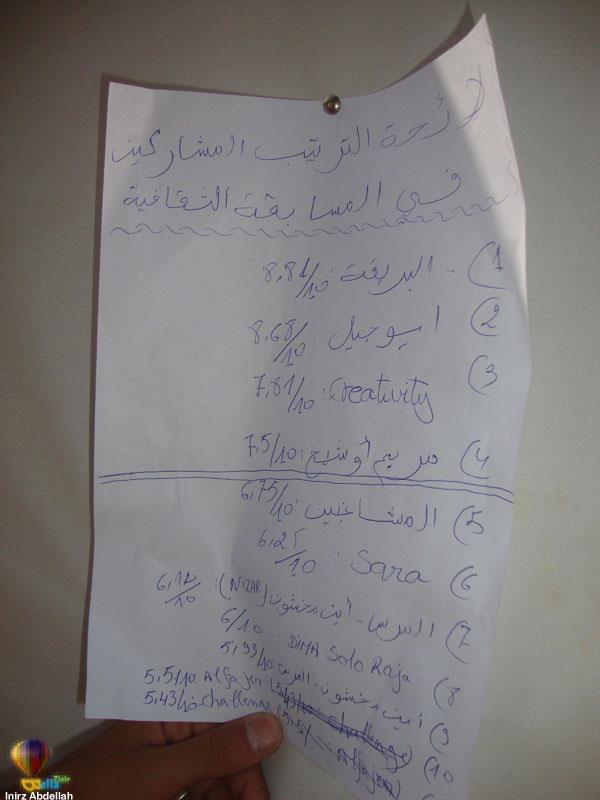 لائحة الترتيب المشاركين
في المسابقة الثقافية
1) - البريقة : 8,81/10
2) ايوجيل : 8,68/10
3) Creativity : 7,81/10
4) مريم أوشيخ : 7,5/10
5) المشاغبين : 6,75/10
6) Sara : 6,25/10
7) المرسا - أيت مخشون (NIZAR) : 6,12/10
8) DIMA Solo Raja : 6/10
9) أيت مخشون - المرسى 5,93/10
10) Alfajer 5,5/10
challenge 5,43/10
Inirz Abdellah